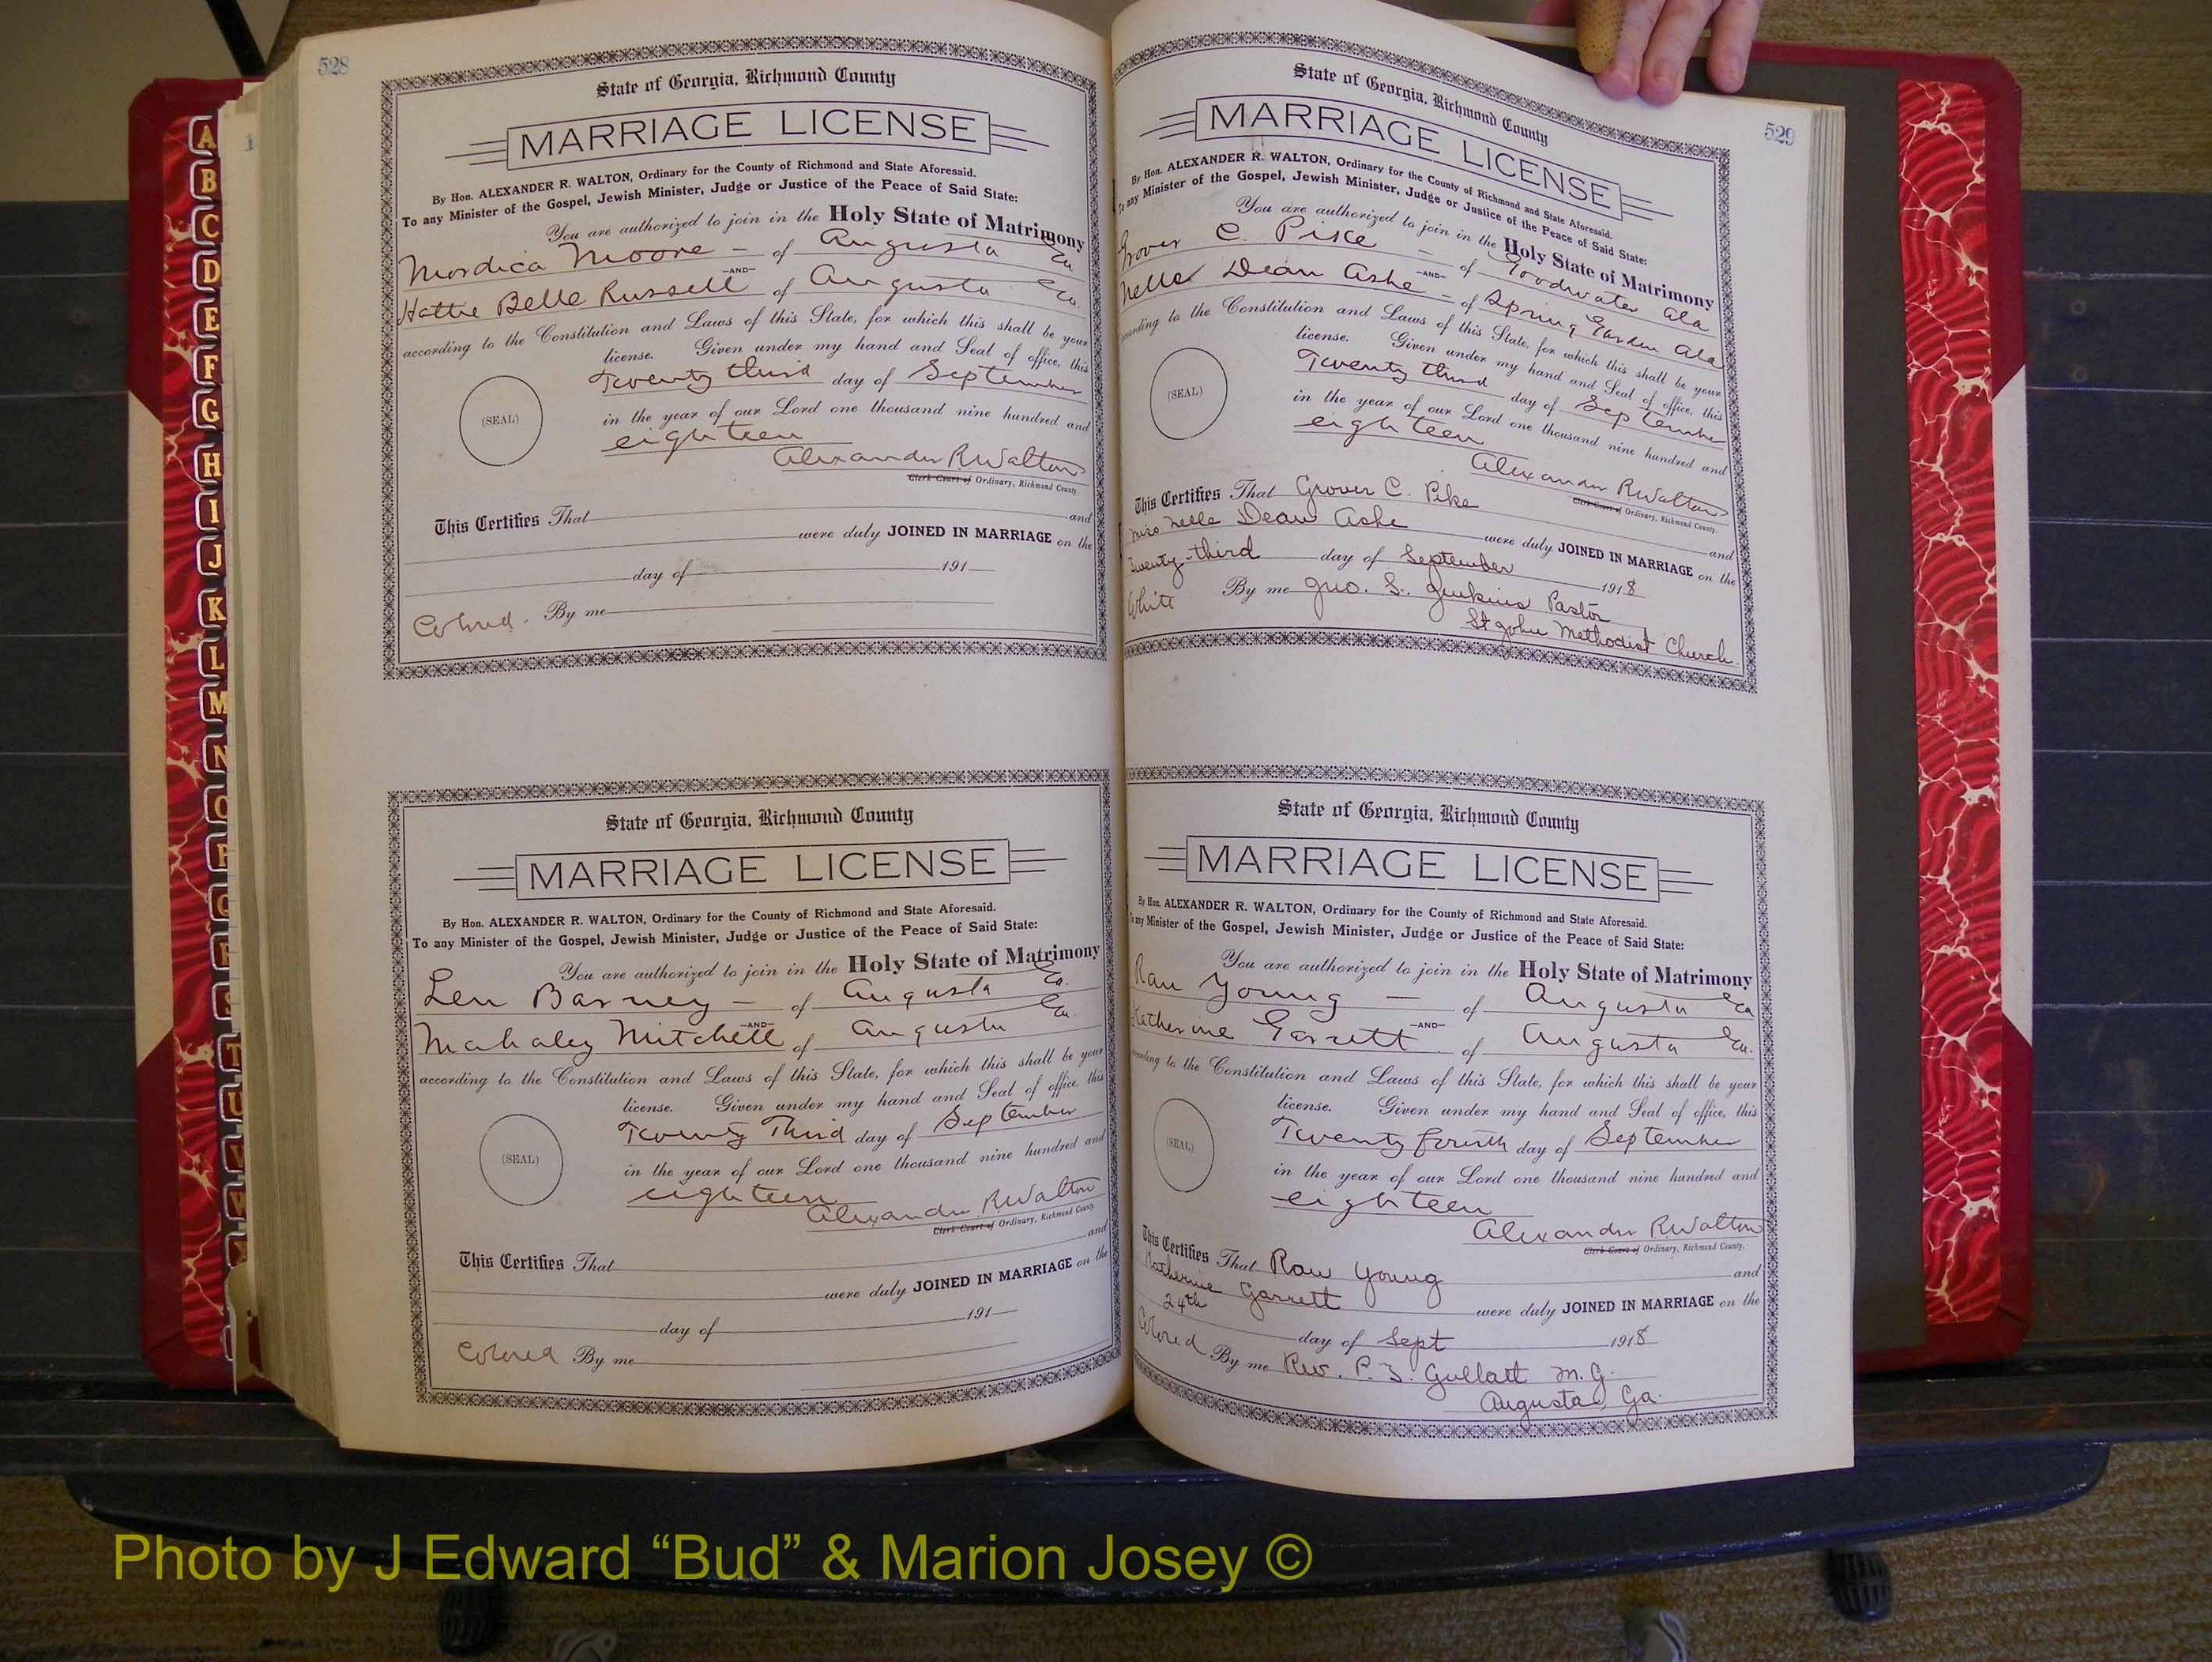 A
B
C
D
E
F
G
H
I
J
K
L
M
N
O
P
Q
R
S
T
U
V
W
528
State of Georgia, Richmond County
MARRIAGE LICENSE
By Hon. ALEXANDER R. WALTON, Ordinary for the County of Richmond and State Aforesaid.
To any Minister of the Gospel, Jewish Minister, Judge or Justice of the Peace of Said State:
You are authorized to join in the Holy State of Matrimony
Mordica Moore - of Augusta Ga
-AND-
Hattie Belle Russell of Augusta Ga.
according to the Constitution and Laws of this State, for which this shall be your
license. Given under my hand and Seal of office, this
Twenty third day of September
(SEAL) in the year of our Lord one thousand nine hundred and
eighteen
Alexander R Walton
Clerk Court of Ordinary, Richmond County
This Certifies That and
were duly JOINED IN MARRIAGE on the
day of 191
Colored. By me
State of Georgia, Richmond County
MARRIAGE LICENSE
By Hon. ALEXANDER R. WALTON, Ordinary for the County of Richmond and State Aforesaid.
To any Minister of the Gospel, Jewish Minister, Judge or Justice of the Peace of Said State:
You are authorized to join in the Holy State of Matrimony
Len Barney - of Augusta Ga.
-AND-
Mahaley Mitchell of Augusta Ga.
according to the Constitution and Laws of this State, for which this shall be your
license. Given under my hand and Seal of office, this
Twenty Third day of September
(SEAL) in the year of our Lord one thousand nine hundred and
eighteen
Alexander R Walton
Clerk Court of Ordinary, Richmond County
This Certifies That and
were duly JOINED IN MARRIAGE on the
day of 191
Colored By me
529
State of Georgia, Richmond County
MARRIAGE LICENSE
By Hon. ALEXANDER R. WALTON, Ordinary for the County of Richmond and State Aforesaid.
To any Minister of the Gospel, Jewish Minister, Judge or Justice of the Peace of Said State:
You are authorized to join in the Holy State of Matrimony
Grover C. Pike - of Goodwater Ala
-AND-
Nelle Dean Ashe - of Spring Garden Ala
according to the Constitution and Laws of this State, for which this shall be your
license. Given under my hand and Seal of office, this
Twenty third day of September
(SEAL) in the year of our Lord one thousand nine hundred and
eighteen
Alexander R Walton
Clerk Court of Ordinary, Richmond County.
This Certifies That Grover C. Pike and
Miss Nelle Dean Ashe were duly JOINED IN MARRIAGE on the
Twenty-third day of September 1918
White By me Jno. S. Jenkins Pastor
St John Methodist Church.
State of Georgia, Richmond County
MARRIAGE LICENSE
By Hon. ALEXANDER R. WALTON, Ordinary for the County of Richmond and State Aforesaid.
To any Minister of the Gospel, Jewish Minister, Judge or Justice of the Peace of Said State:
You are authorized to join in the Holy State of Matrimony
Rau Young - of Augusta Ga
-AND-
Katherine Garrett of Augusta Ga.
according to the Constitution and Laws of this State, for which this shall be your
license. Given under my hand and Seal of office, this
Twenty fourth day of September
(SEAL) in the year of our Lord one thousand nine hundred and
eighteen
Alexander R Walton
Clerk Court of Ordinary, Richmond County.
This Certifies That Rau Young and
Katherine Garrett were duly JOINED IN MARRIAGE on the
24th day of Sept 1918
Colored By me Rev. P. Z. Gullatt M. G.
Augusta, Ga.
Photo by J Edward “Bud” & Marion Josey ©